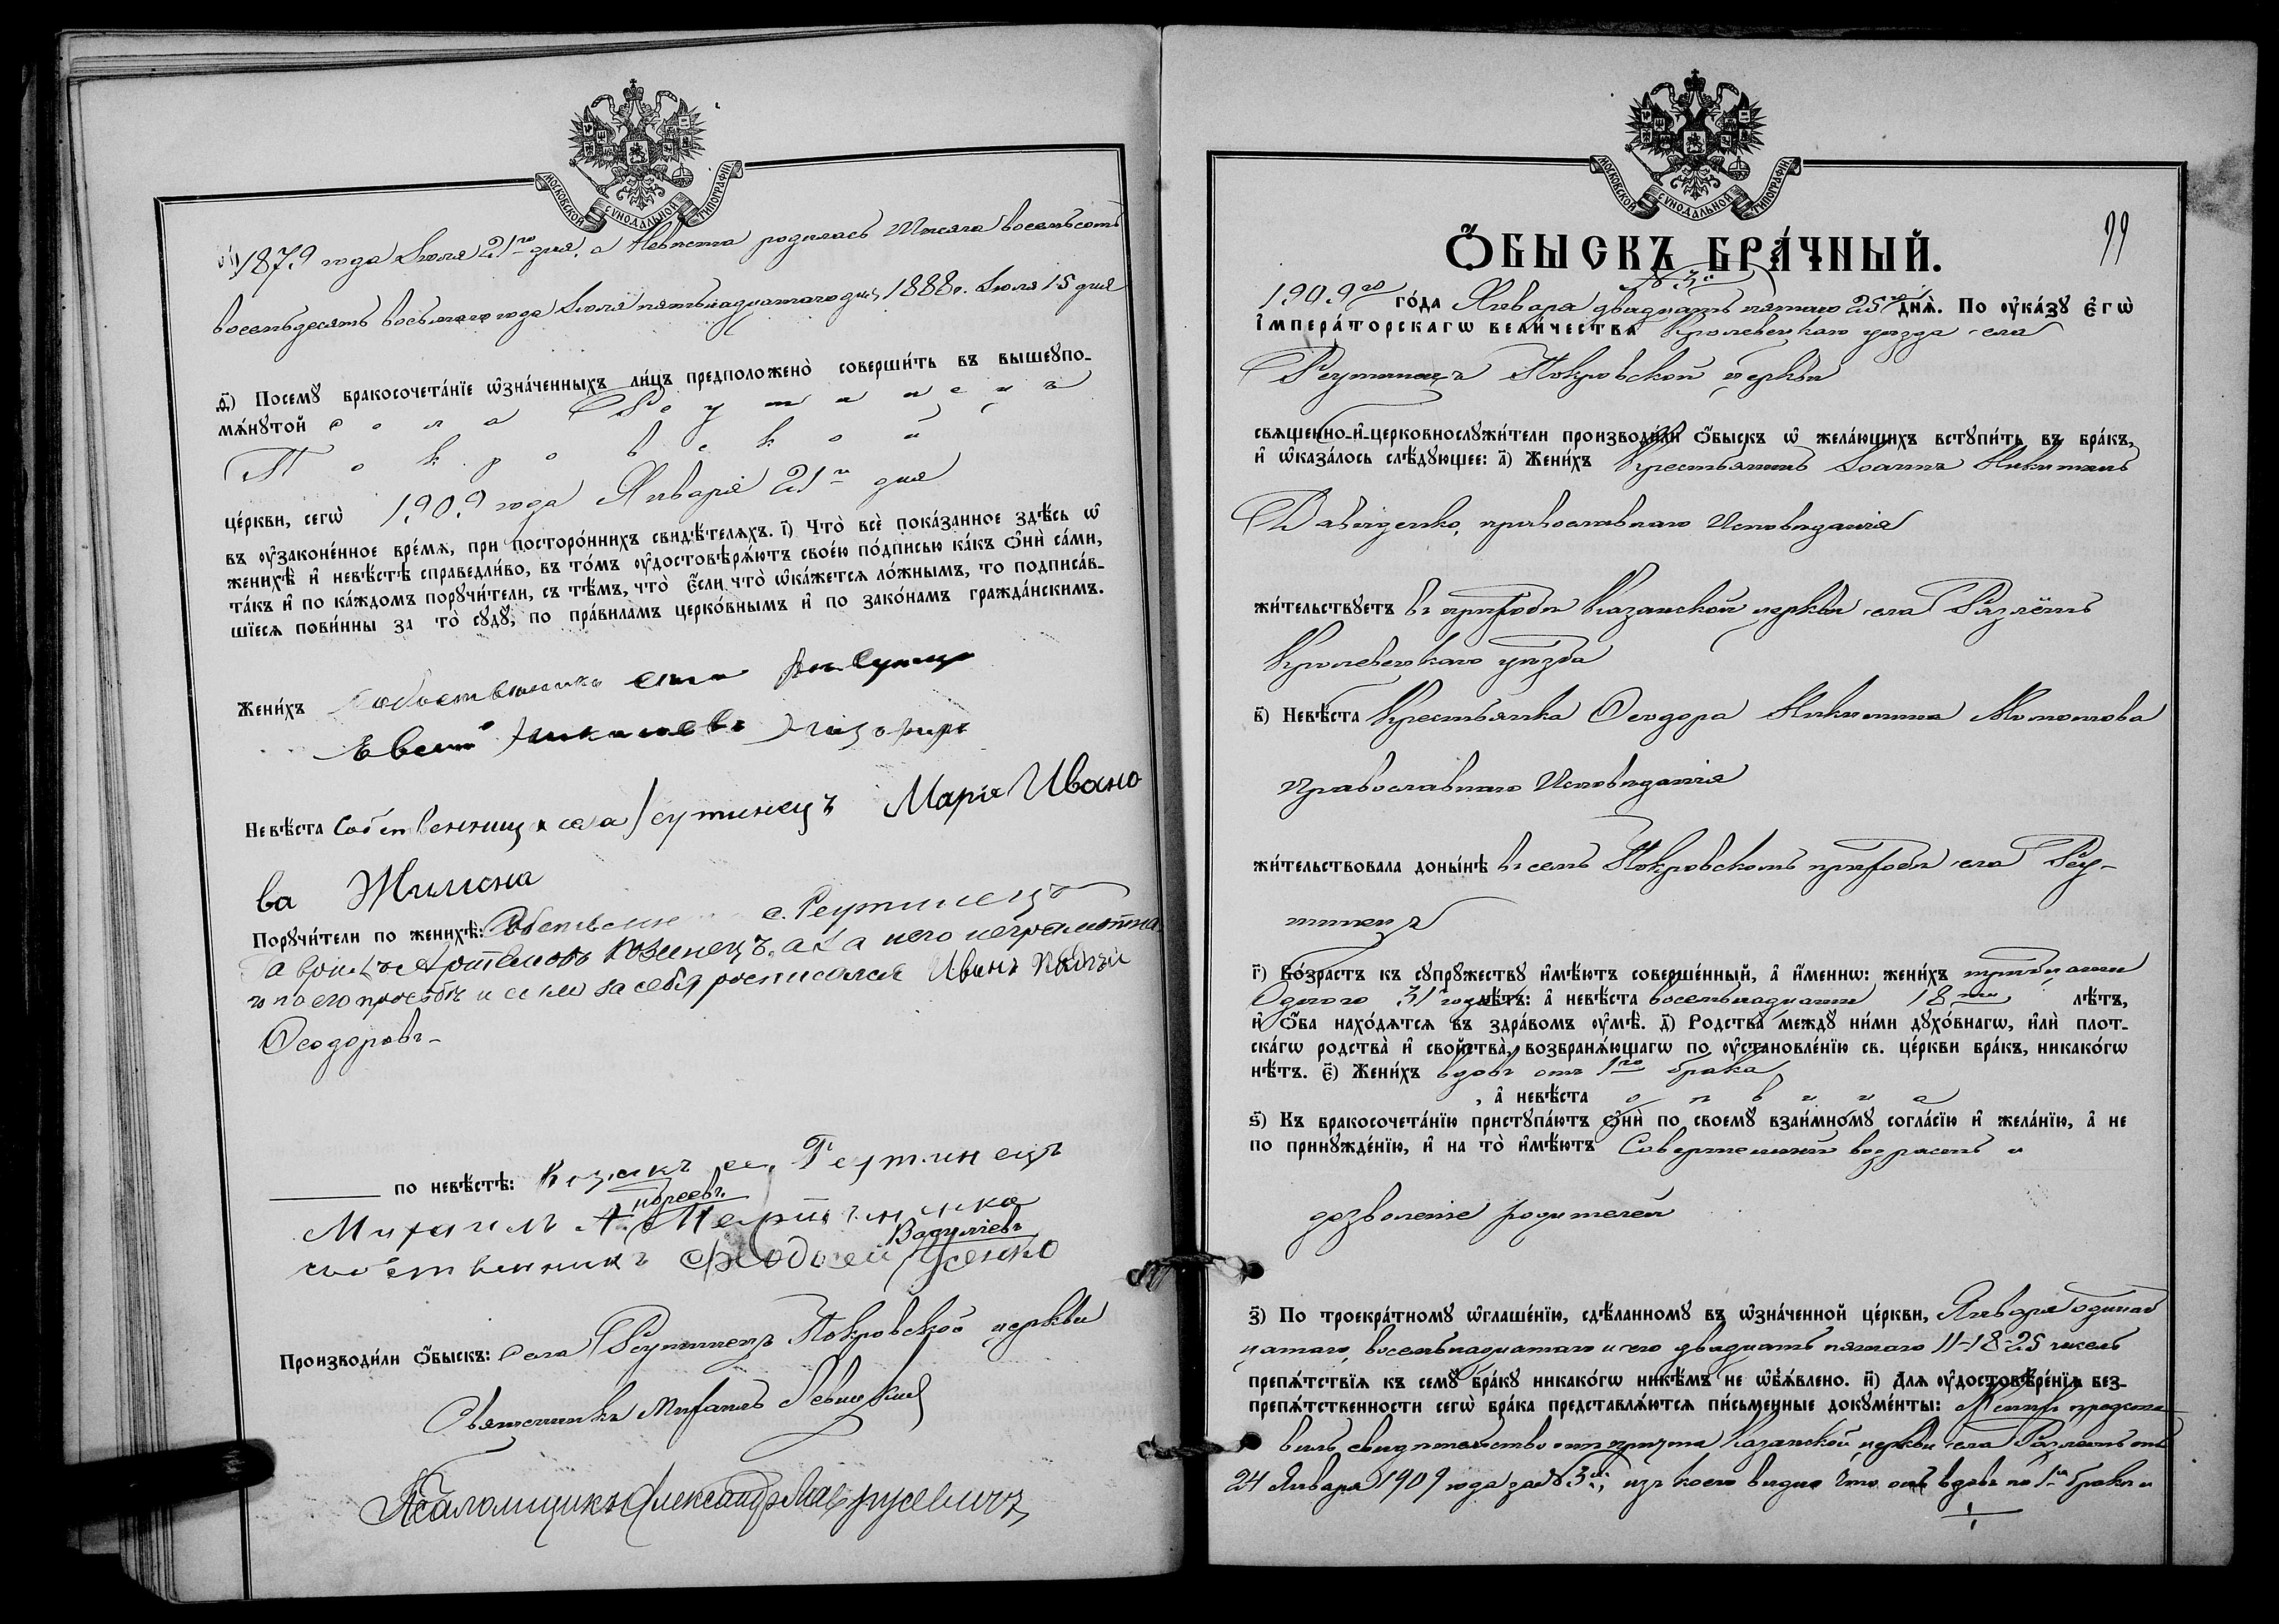 МОСКОВСКОЙ СУНОДАЛЬНОЙ ТИПОГРАФІИ
1879 года Іюля 21го дня, а Невѣста родилась Тысяча восемьсотъ
восемьдесятъ восьмого года Іюля пятьнадцатаго дня, 1888 г. Іюля 15 дня
д҃і) Посемꙋ бракосочета́нїе ѡ҆зна́ченныхъ ли́цъ предположено̀ соверши́ть въ вышеꙋпо-
мѧ́нꙋтой села Реутинецъ
Покровской
це́ркви, сегѡ̀ 1909 года Января 21го дня
въ ᲂу҆законе́нное вре́мѧ, при посторо́ннихъ свидѣ́телѧхъ. і҃) Что̀ всѐ пока́занное здѣ́сь ѡ҆
женихѣ̀ и҆ невѣ́стѣ справедли́во, въ то́мъ ᲂу҆достовѣрѧ́ютъ свое́ю по́дписью ка́къ ѻ҆нѝ са́ми,
та́къ и҆ по ка́ждомъ порꙋчи́тели, съ тѣ́мъ, что̀ є҆́сли что̀ ѡ҆ка́жетсѧ ло́жнымъ, то подписа́в-
шїесѧ пови́нны за то̀ сꙋдꙋ̀, по пра́виламъ церко́внымъ и҆ по зако́намъ гражда́нскимъ.
Жени́хъ Собственникъ села
Невѣ́ста Собственница села Реутинецъ Марія Ивано
ва Жилина
Порꙋчи́тели по женихѣ̀: с. Реутинецъ
Артемовъ а за него неграмотна
го по его просьбѣ и самъ за себя росписался Иванъ
Ѳеодоровъ
по невѣ́стѣ: Козакъ с. Реутинецъ
Михаилъ А.
Собственникъ Феодосей Усенко
Производи́ли ѻ҆́быскъ: Села Реутинецъ Покровской церкви
Священникъ Михаилъ Левицкій
Псаломщикъ Александръ
МОСКОВСКОЙ СУНОДАЛЬНОЙ ТИПОГРАФІИ
99
Ѻ҆́БЫСКЪ БРА́ЧНЫЙ.
№ 3й
1909го го́да Января двадцать пятаго 25го днѧ̀. По ᲂу҆ка́зꙋ є҆гѡ̀
і҆мпера́торскагѡ вели́чества Кролевецкаго уѣзда села
Реутинецъ Покровской церкви
свѧщенно-и҆-церковнослꙋжи́тели производи́ли ѻ҆́быскъ ѡ҆ жела́ющихъ встꙋпи́ть въ бра́къ,
и҆ ѡ҆каза́лось слѣ́дꙋющее: а҃) Жени́хъ Крестьянинъ Іоаннъ Никитинъ
Давиденко, православнаго Исповѣданія
жи́тельствꙋетъ въ приходѣ Казанской церкви села
Кролевецкаго уѣзда
в҃) Невѣ́ста Крестьянка Ѳеодора Никитина
православнаго Исповѣданія
жи́тельствовала доны́нѣ въ семъ Покровскомъ приходѣ села Реу-
тинецъ
г҃) Во́зрастъ къ сꙋпрꙋжествꙋ и҆мѣ́ютъ соверше́нный, а҆ и҆́меннѡ: жени́хъ тридцати
Одного 31 года лѣ́тъ: а҆ невѣ́ста восемьнадцати 18ти лѣ́тъ,
и҆ ѻ҆́ба нахо́дѧтсѧ въ здра́вомъ ᲂу҆мѣ̀. д҃) Родства̀ междꙋ ни́ми дꙋхо́внагѡ, и҆лѝ плот-
ска́гѡ родства̀ и҆ свойства̀, возбранѧ́ющагѡ по ᲂу҆становле́нїю св. це́ркви бра́къ, никако́гѡ
нѣ́тъ. є҃) Жени́хъ вдовъ отъ 1го брака
, а҆ невѣ́ста дѣвица
ѕ҃) Къ бракосочета́нїю пристꙋпа́ютъ ѻ҆нѝ по своемꙋ̀ взаи́мномꙋ согла́сїю и҆ жела́нїю, а҆ не
по принꙋжде́нїю, и҆ на то̀ и҆мѣ́ютъ Совершенный возрастъ и
дозволеніе родителей
з҃) По троекра́тномꙋ ѡ҆глаше́нїю, сдѣ́ланномꙋ въ ѡ҆зна́ченной це́ркви, Января одинад
цатаго, восемьнадцатаго и сего двадцать пятаго 11-18-25 числъ
препѧ́тствїѧ къ семꙋ̀ бра́кꙋ никако́гѡ никѣ́мъ не ѡ҆б̾ѧ́влено. и҃) Длѧ ᲂу҆достовѣре́нїѧ без-
препѧ́тственности сегѡ̀ бра́ка представлѧ́ютсѧ пи́сьменные докꙋме́нты: Женихъ предста
вилъ свидѣтельство отъ причта Казанской церкви села отъ
24 Января 1909 года за № 3й, изъ коего видно что онъ вдовъ по 1мъ бракѣ и